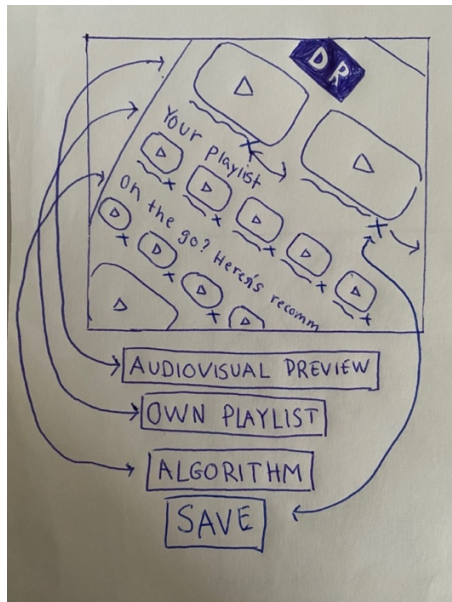 DR
Your playlist
On the go? Heres's recomm
AUDIOVISUAL PREVIEW
OWN PLAYLIST
ALGORITHM
SAVE